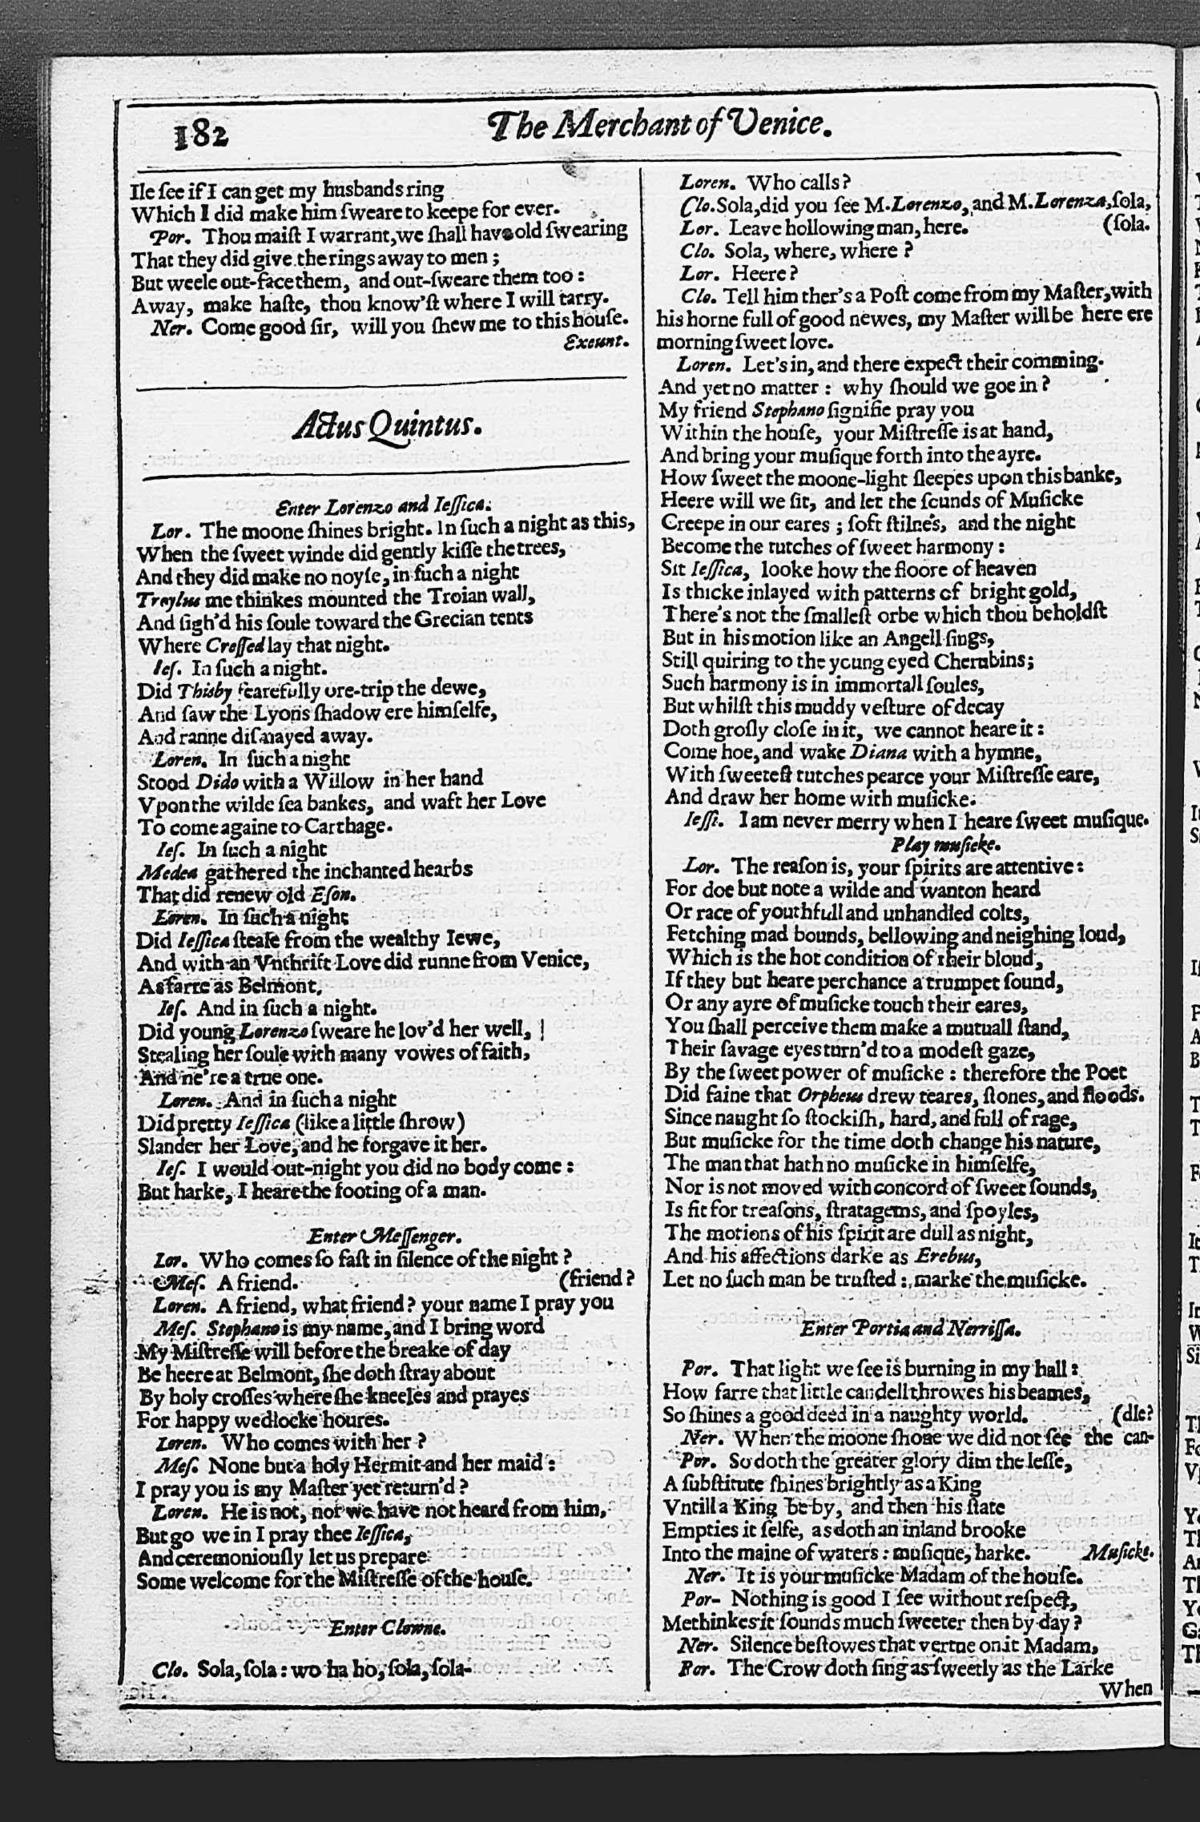 182 The Merchant of Venice.
Ile ſee if I can get my husbands ring
Which I did make him ſweare to keepe for ever.
Por. Thou maiſt I warrant, we ſhall have old ſwearing
That they did give the rings away to men ;
But weele out-face them, and out-ſweare them too :
Away, make haſte, thou know'ſt where I will tarry.
Ner. Come good ſir, will you ſhew me to this houſe.
Exeunt.
Actus Quintus.
Enter Lorenzo and Ieſſica.
Lor. The moone ſhines bright. In ſuch a night as this,
When the ſweet winde did gently kiſſe the trees,
And they did make no noyſe, in ſuch a night
Troylus me thinkes mounted the Troian wall,
And ſigh'd his ſoule toward the Grecian tents
Where Creſſed lay that night.
Ieſ. In ſuch a night.
Did Thisby fearefully ore-trip the dewe,
And ſaw the Lyons ſhadow ere himſelfe,
And ranne diſmayed away.
Loren. In ſuch a night
Stood Dido with a Willow in her hand
Vpon the wilde ſea bankes, and waft her Love
To come againe to Carthage.
Ieſ. In ſuch a night
Medea gathered the inchanted hearbs
That did renew old Eſon.
Loren. In ſuch a night
Did Ieſſica ſteale from the wealthy Iewe,
And with an Vnthrift Love did runne from Venice,
As farre as Belmont,
Ieſ. And in ſuch a night.
Did young Lorenzo ſweare he lov'd her well,
Stealing her ſoule with many vowes of faith,
And ne're a true one.
Loren. And in ſuch a night
Did pretty Ieſſica (like a little ſhrow)
Slander her Love, and he forgave it her.
Ieſ. I would out-night you did no body come :
But harke, I heare the footing of a man.
Enter Meſſenger.
Lor. Who comes ſo faſt in ſilence of the night ?
Meſ. A friend. (friend ?
Loren. A friend, what friend ? your name I pray you
Meſ. Stephano is my name, and I bring word
My Miſtreſſe will before the breake of day
Be heere at Belmont, ſhe doth ſtray about
By holy croſſes where ſhe kneeles and prayes
For happy wedlocke houres.
Loren. Who comes with her ?
Meſ. None but a holy Hermit and her maid :
I pray you is my Maſter yet return'd ?
Loren. He is not, nor we have not heard from him,
But go we in I pray thee Ieſſica,
And ceremoniouſly let us prepare
Some welcome for the Miſtreſſe of the houſe.
Enter Clowne.
Clo. Sola, ſola : wo ha ho, ſola, ſola-
Loren. Who calls ?
Clo. Sola, did you ſee M. Lorenzo, and M. Lorenza, ſola,
Lor. Leave hollowing man, here. (ſola.
Clo. Sola, where, where ?
Lor. Heere ?
Clo. Tell him ther's a Poſt come from my Maſter, with
his horne full of good newes, my Maſter will be here ere
morning ſweet love.
Loren. Let's in, and there expect their comming.
And yet no matter : why ſhould we goe in ?
My friend Stephano ſignifie pray you
Within the houſe, your Miſtreſſe is at hand,
And bring your muſique forth into the ayre.
How ſweet the moone-light ſleepes upon this banke,
Heere will we ſit, and let the ſcunds of Muſicke
Creepe in our eares ; ſoft ſtilnes, and the night
Become the tutches of ſweet harmony :
Sit Ieſſica, looke how the floore of heaven
Is thicke inlayed with patterns of bright gold,
There's not the ſmalleſt orbe which thou beholdſt
But in his motion like an Angell ſings,
Still quiring to the young eyed Cherubins;
Such harmony is in immortall ſoules,
But whilſt this muddy veſture of decay
Doth groſly cloſe in it, we cannot heare it :
Come hoe, and wake Diana with a hymne,
With ſweeteſt tutches pearce your Miſtreſſe eare,
And draw her home with muſicke.
Ieſſi. I am never merry when I heare ſweet muſique.
Play muſicke.
Lor. The reaſon is, your ſpirits are attentive :
For doe but note a wilde and wanton heard
Or race of youthfull and unhandled colts,
Fetching mad bounds, bellowing and neighing loud,
Which is the hot condition of their bloud,
If they but heare perchance a trumpet ſound,
Or any ayre of muſicke touch their eares,
You ſhall perceive them make a mutuall ſtand,
Their ſavage eyes turn'd to a modeſt gaze,
By the ſweet power of muſicke : therefore the Poet
Did faine that Orpheus drew teares, ſtones, and floods.
Since naught ſo ſtockiſh, hard, and full of rage,
But muſicke for the time doth change his nature,
The man that hath no muſicke in himſelfe,
Nor is not moved with concord of ſweet ſounds,
Is fit for treaſons, ſtratagems, and ſpoyles,
The motions of his ſpirit are dull as night,
And his affections darke as Erebus,
Let no ſuch man be truſted : marke the muſicke.
Enter Portia and Nerriſſa.
Por. That light we ſee is burning in my hall :
How farre that little candell throwes his beames,
So ſhines a good deed in a naughty world. (dle?
Ner. When the moone ſhone we did not ſee the can-
Por. So doth the greater glory dim the leſſe,
A ſubſtitute ſhines brightly as a King
Vntill a King be by, and then his ſtate
Empties it ſelfe, as doth an inland brooke
Into the maine of waters : muſique, harke. Muſicke.
Ner. It is your muſicke Madam of the houſe.
Por- Nothing is good I ſee without reſpect,
Methinkes it ſounds much ſweeter then by day ?
Ner. Silence beſtowes that vertue on it Madam,
Por. The Crow doth ſing as ſweetly as the Larke
When